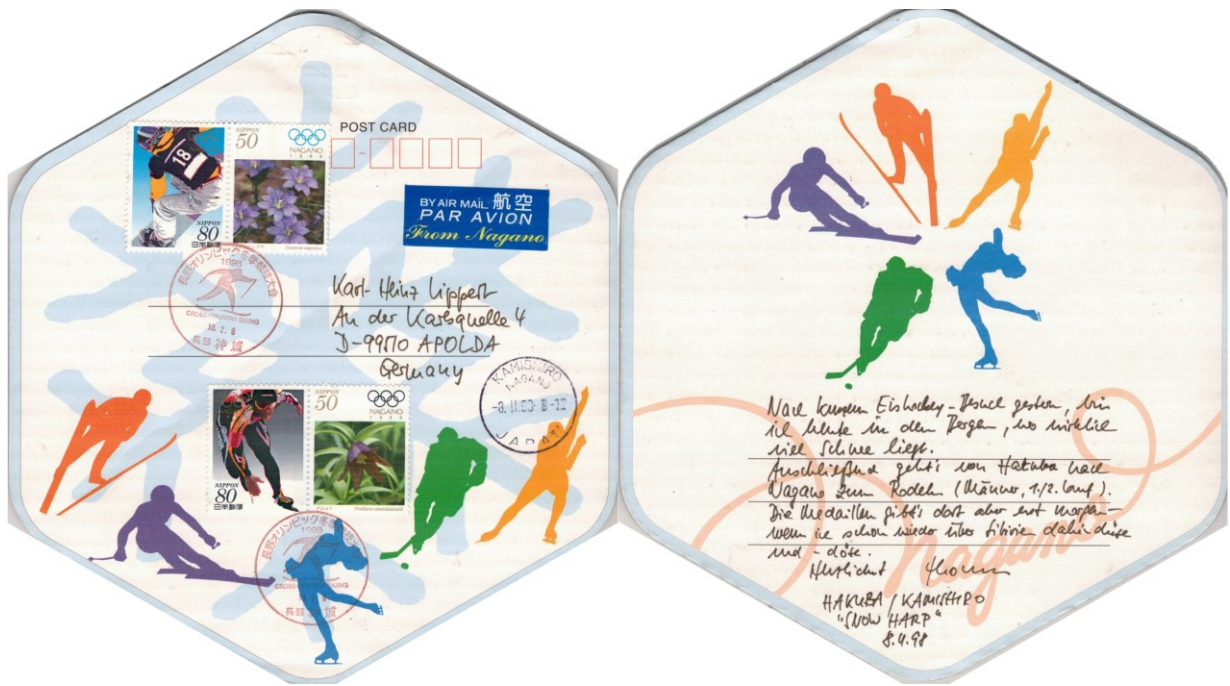 18
NIPPON
50
NAGANO
1998
NIPPON
80
日本郵便
POST CARD
BY AIR MAIL 航空
PAR AVION
From Nagano
長野オリンピック冬季競技大会
1998
CROSS-COUNTRY SKIING
10.2.8
長野 神城
Karl-Heinz Lippert
An der Karlsquelle 4
D-99510 APOLDA
Germany
KAMISHIRO
NAGANO
-8.II.98 8-12
JAPAN
NIPPON
50
NAGANO
1998
NIPPON
80
日本郵便
長野オリンピック冬季
1998
CROSS
長野 神城
Nach kurzem Eishockey-Besuch gestern, bin
ich heute in den Bergen, wo wirklich
viel Schnee liegt.
Anschließend geht's von Hakuba nach
Nagano zum Rodeln (Männer, 1./2. Lauf).
Die Medaillen gibt's dort aber erst morgen -
wenn ich schon wieder über Sibirien dahin düse
und - döse.
Herzlichst Thomas
Nagano
HAKUBA / KAMISHIRO
"SNOW HARP"
8.II.98